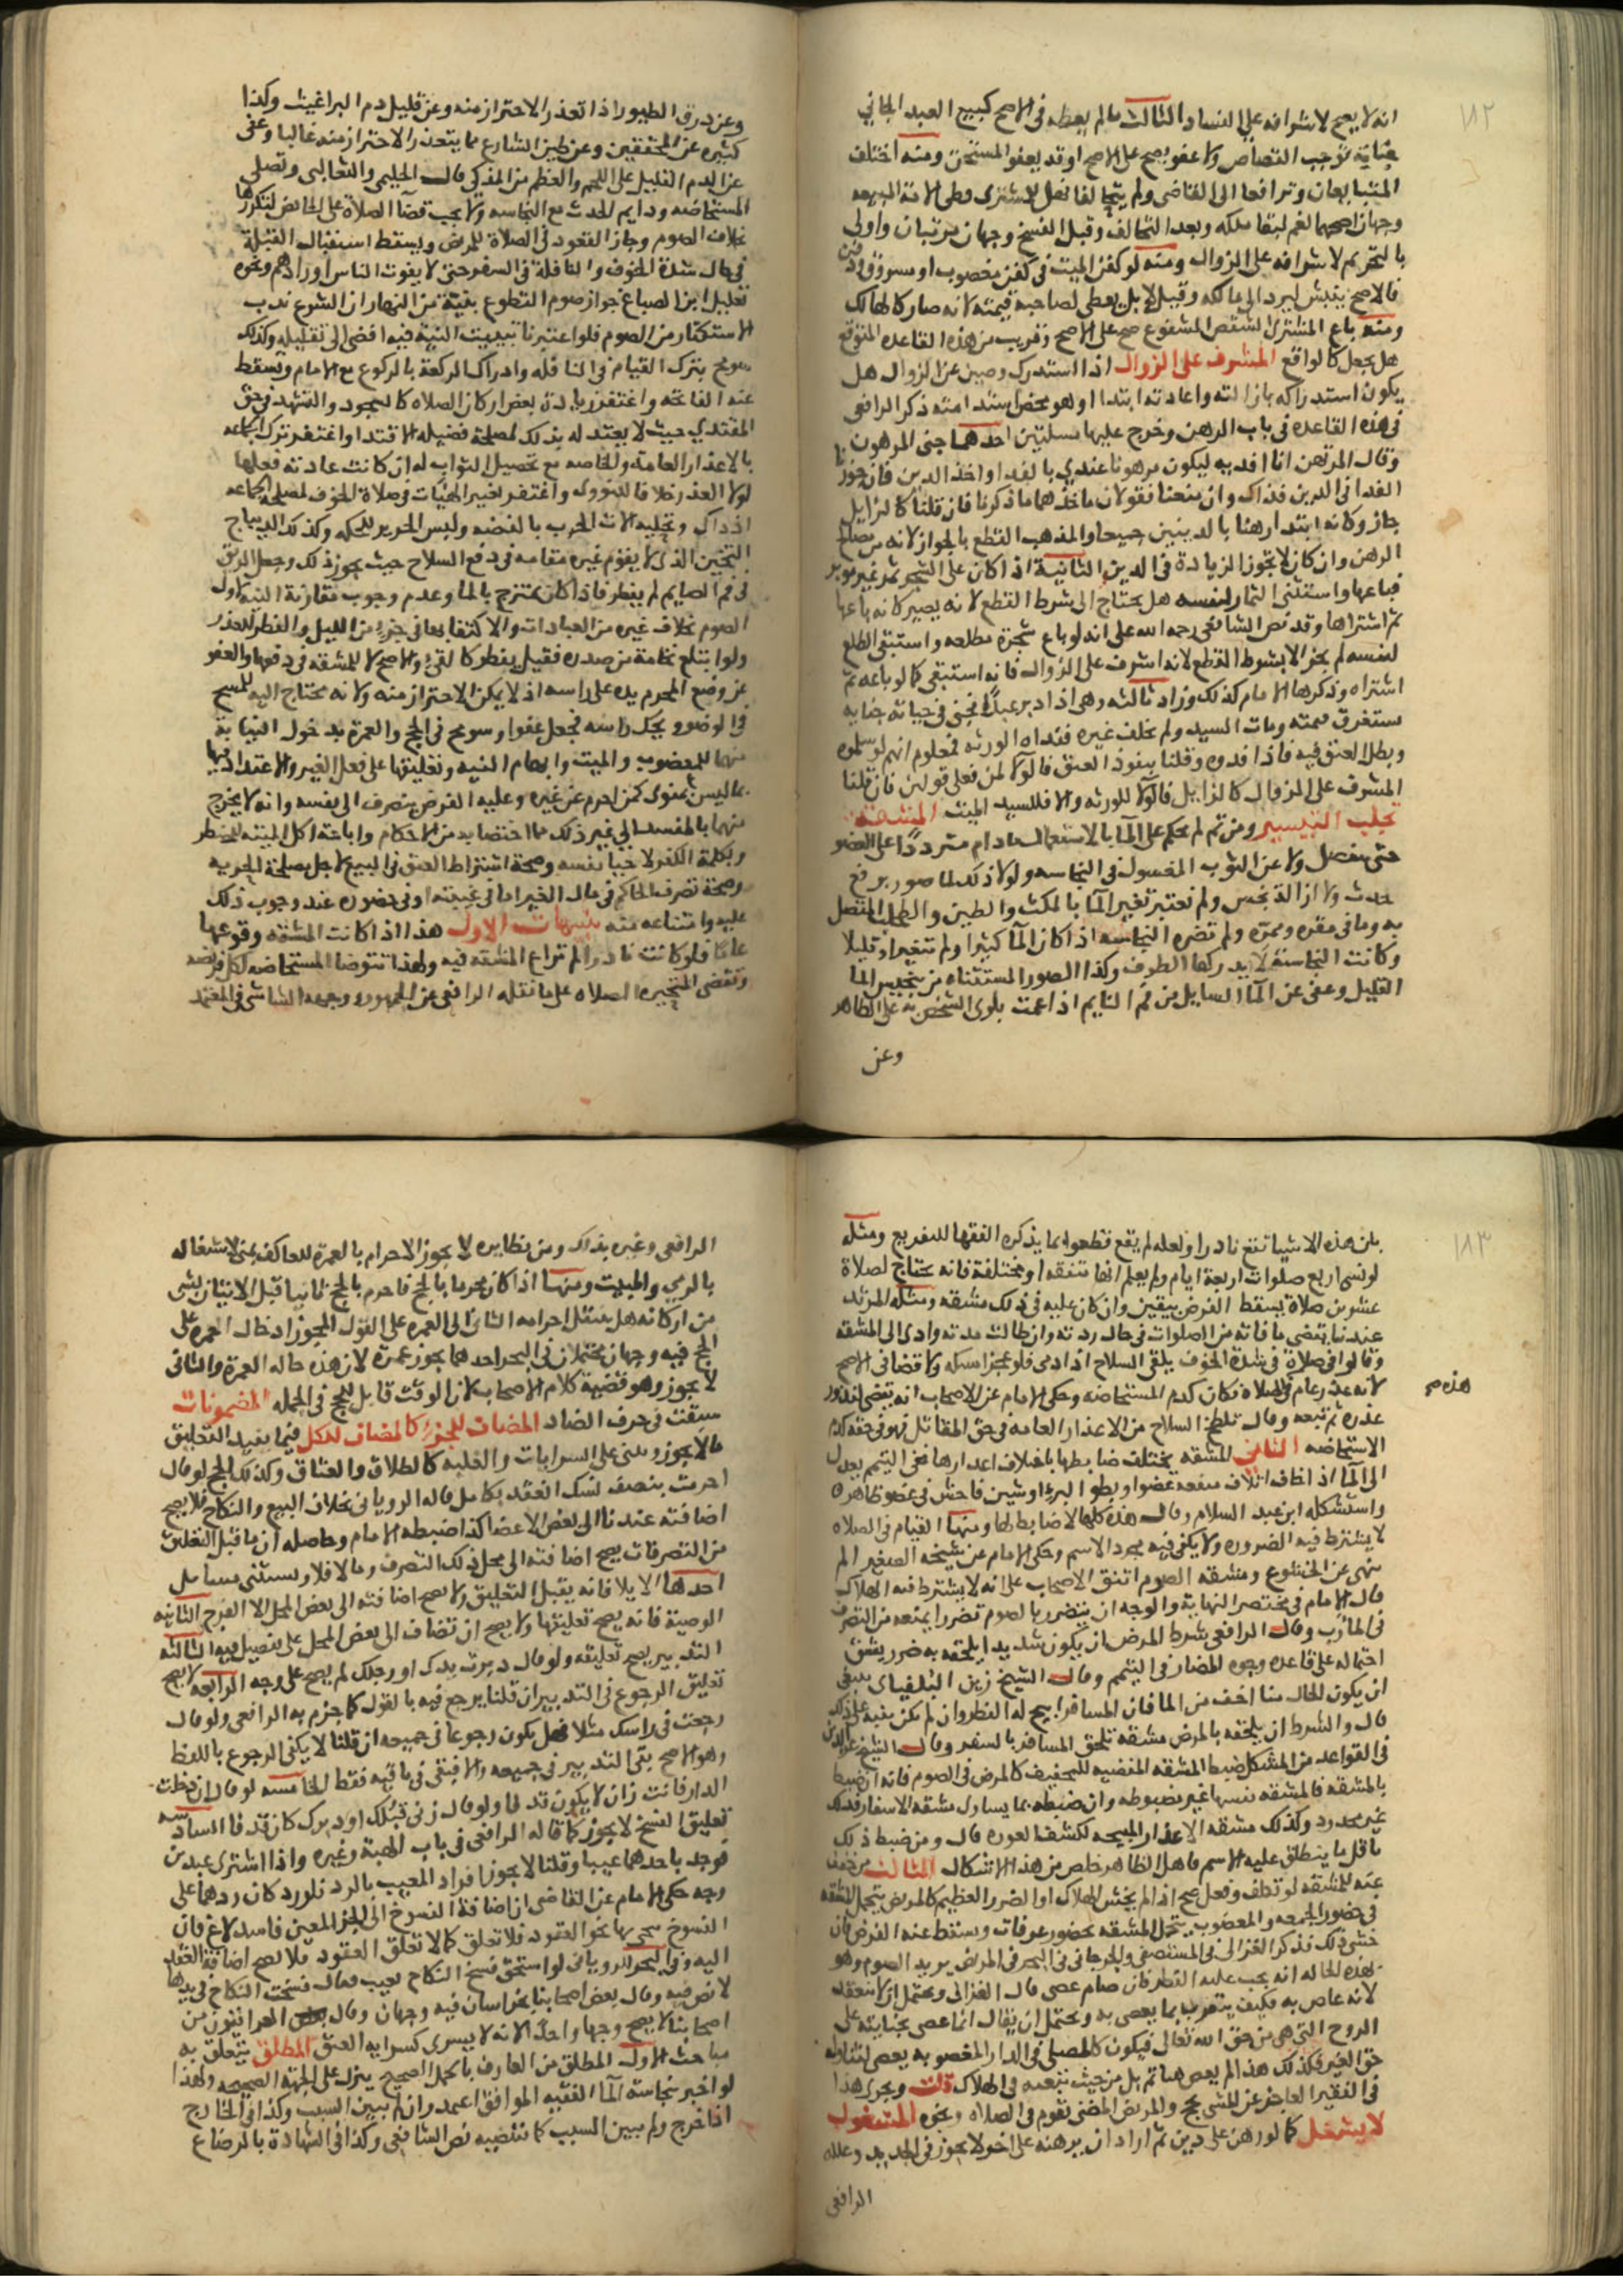 ١٨٢
انه لا يصح لاشرافه على الفساد الثالث ما لم يعطه في الاصح كبيع العبد الجاني
جناية توجب القصاص ولا عفو يصح على الاصح او قد يعفو المستحق ومنه اختلف
المتبايعان وترافعا الى القاضي ولم يتحالفا فهل للمشتري وطي الامة المبيعه
وجهان اصحهما نعم لبقا ملكه وبعد التحالف وقبل الفسخ وجهان مرتبان واولى
بالتحريم لاشرافه على الزوال ومنه لو كفن الميت في كفن مغصوب او مسروق ودفن
فالاصح ينبش ليرد الى مالكه وقيل لا بل يعطى لصاحبه قيمته لانه صار كالهالك
ومنه باع المشتري الشقص المشفوع صح على الاصح وقريب من هذه القاعده المتوقع
هل يجعل كالواقع المشرف على الزوال اذا استدرك وصين عن الزوال هل
يكون استدراكه بازالته واعادته ابتدا او هو محض استدامته ذكر الرافعي
في هذه القاعده في باب الرهن وخرج عليها مسلتين احدهما جنى المرهون
وقال المرتهن انا افديه ليكون مرهونا عندي بالفدا واخذ الدين فان جوزنا
الفدا في الدين فذاك وان منعنا فقولان ماخذهما ما ذكرنا فان قلنا كالزايل
جاز وكانه ابتدا رهنا بالدينين جميعا والمذهب القطع بالجواز لانه من مصالح
الرهن وان كان لا تجوز الزيادة في الدين الثانية اذا كان على الشجر ثمر غير موبر
فباعها واستثنى الثمار لنفسه هل يحتاج الى شرط القطع لانه يصير كانه باعها
ثم اشتراها وقد نص الشافعي رحمه الله على انه لو باع شجرة مطلعه واستبقى الطلع
لنفسه لم يجز الا بشرط القطع لانه اشرف على الزوال فانه استبقى كما لو باعه ثم
اشتراه وذكرها الامام كذلك وزاد ثالثه وهي اذا دبر عبدًا فجنى في حياته جنايه
تستغرق قيمته ومات السيد ولم يخلف غيره ففداه الورثه فمعلوم انهم لو سلموه
وبطل العتق فيه فاذا فدوه وقلنا بنفوذ العتق فالولا لمن فعلى قولين فان قلنا
المشرف على الزوال كالزايل فالولا للورثه والا فللسيد الميت المشقة
تجلب التيسير ومن ثم لم يحكم على الما بالاستعمال ما دام مترددًا على العضو
حتى ينفصل ولا عن الثوب المغسول في النجاسه ولولا ذلك لما صور برفع
حدث ولا ازالة نجس ولم نعتبر تغير الما بالمكث والطين والطحلب المتصل
به وما في مقره وممره ولم تضره النجاسه اذا كان الما كثيرا ولم تتغير او قليلا
وكانت النجاسة لا يدركها الطرف وكذا الصور المستثناه من تنجيس الما
القليل وعفي عن الما السايل من فم النايم اذا عمت بلوى الشخص به على الظاهر
وعن
وعن ذرق الطيور اذا تعذر الاحتراز منه وعن قليل دم البراغيث وكذا
كثيره عن المحققين وعن طين الشارع مما يتعذر الاحتراز منه غالبا وعفي
عن الدم القليل على اللحم والعظم من المذكى قال الحليمي والثعالبي وتصلي
المستحاضه ودايم الحدث مع النجاسه ولا يجب قضا الصلاة على الحائض لتكررها
بخلاف الصوم وجاز القعود في الصلاة للمرض ويسقط استقبال القبلة
في حال شدة الخوف والنافلة في السفر حتى لا يفوت الناس اورادهم ونحوه
تعليل ابن الصباغ جواز صوم التطوع بنية من النهار ان الشرع ندب
الاستكثار من الصوم فلو اعتبرنا تبييت النية فيه افضى الى تقليله وكذلك
سومح بترك القيام في النافله وادراك الركعة بالركوع مع الامام وتسقط
عنه الفاتحه واغتفر زيادة بعض اركان الصلاه كالسجود والتشهد في حق
المقتدي حيث لا يعتد له بذلك لمصلحة فضيله الاقتدا واغتفر ترك الجماعه
بالاعذار العامة والخاصه مع تحصيل الثواب له ان كانت عادته فعلها
لولا العذر خلافا للنووي واغتفر تغيير الهيئات في صلاة الخوف لمصلحة الجماعه
اذ ذاك وتحليه الات الحرب بالفضه ولبس الحرير للحكه وكذلك الديباج
الثخين الذي لا يقوم غيره مقامه في دفع السلاح حيث يجوز ذلك وجعل الريق
في فم الصايم لم يفطر فاذا كان يمتزج بالما وعدم وجوب مقارنة النيه اول
الصوم بخلاف غيره من العبادات والاكتفا بها في جزء من الليل والفطر للعذر
ولو ابتلع نخامة من صدره فقيل يفطر كالقيء والاصح لا للمشقه في دفعها والعفو
عن وضع المحرم يده على راسه اذ لا يمكن الاحتراز منه ولانه محتاج اليه للمسح
في الوضو وحك راسه فجعل عفوا وسومح في الحج والعمرة بدخول النيابة
فيهما للمعضوب والميت وابهام النيه وتعليقها على فعل الغير والاعتداد فيها
بما ليس بمنوى كمن احرم عن غيره وعليه الفرض ينصرف الى نفسه وانه لا يخرج
منهما بالمفسد الى غير ذلك مما اختصا به من الاحكام واباحة اكل الميته للمضطر
وبكلمة الكفر لاحيا نفسه وصحة اشتراط العتق في البيع لاجل مصلحة الحريه
وصحة تصرف الحاكم في مال الغير اما في غيبته او في حضوره عند وجوب ذلك
عليه وامتناعه منه تنبيهات الاول هذا اذا كانت المشقه وقوعها
عاما فلو كانت نادرا لم تراع المشقه فيه ولهذا تتوضا المستحاضه لكل فريضه
وتقضي المتحيرة الصلاه على ما نقله الرافعي عن الجمهور ووجهه الشاشي في المعتمد
١٨٣
بان هذه الاشيا تقع نادرا ولعله لم يقع قط وانما يذكره الفقها للتفريع ومثله
لو نسي اربع صلوات اربعة ايام ولم يعلم انها متفقه او مختلفة فانه يحتاج لصلاة
عشرين صلاة يسقط الفرض بيقين وان كان عليه في ذلك مشقه ومثله المرتد
عندنا يقضي ما فاته من الصلوات في حال ردته وان طالت مدته وادى الى المشقه
وقالوا في صلاة في شدة الخوف يلقي السلاح اذا دمي فلو عجز امسكه ولا قضا في الاصح
لانه عذر عام في الصلاه فكان كدم المستحاضه وحكى الامام عن الاصحاب انه يقضي لندور
هذه صح
عذره ثم تبعه وقال تلطخ السلاح من الاعذار العامه في حق المقاتل فهو في حقه كدم
الاستحاضه الثاني المشقه يختلف ضابطها باختلاف اعدارها ففي التيمم يعدل
الى الما اذا خاف اتلاف منفعه عضو او بطو البرء او شين فاحش في عضو ظاهر
واستشكله ابن عبد السلام وقال هذه كلها لا ضابط لها ومنها القيام في الصلاه
لا يشترط فيه الضروره ولا يكفي فيه مجرد الاسم وحكى الامام عن شيخه الصغير الم
يلهى عن الخشوع ومشقه الصوم اتفق الاصحاب على انه لا يشترط فيه الهلاك
قال الامام في مختصر النهاية والوجه ان يتضرر بالصوم تضررا يمنعه من التصرف
في المآرب وقال الرافعي شرط المرض ان يكون شديدا يلحقه به ضرر يشق
احتماله على قاعده وجوه المضار في التيمم وقال الشيخ زين البلفياي ينبغي
ان يكون الحال هنا اخف من الما فان المسافر ابيح له الفطر وان لم يكن بقيه على ذلك
قال والشرط ان يلحقه بالمرض مشقه تلحق المسافر بالسفر وقال الشيخ عز الدين
في القواعد من المشكل ضبط المشقه المقتضيه للتخفيف كالمرض في الصوم فانه ان ضبط
بالمشقه فالمشقه نفسها غير مضبوطه وان ضبطه بما يساوي مشقه الاسفار فذلك
غير محدود وكذلك مشقه الاعذار المبيحه لكشف العوره قال ومن ضبط ذلك
باقل ما ينطلق عليه الاسم كاهل الظاهر خلص من هذا الاشكال الثالث من خفف
عنه للمشقه لو تكلف وفعل صح اذا لم يخش الهلاك او الضرر العظيم كالمريض يتحمل المشقه
في حضور الجمعه والمعضوب يتحمل المشقه بحضور عرفات ويسقط عنه الفرض فان
خشي ذلك فذكر الغزالي في المستصفى والجرجاني في البحر في المريض يريد الصوم وهو
بهذه الحاله انه يجب عليه الفطر فان صام عصى قال الغزالي ويحتمل ان لا ينعقد
لانه عاص به فكيف يتقرب بما يعصي به ويحتمل ان يقال انما عصى بجنايته على
الروح التي هي من حق الله تعالى فيكون كالمصلي في الدار المغصوبه يعصي لتناوله
حق الغير فكذلك هذا لم يعص هنا ثم بل من حيث نفسه في الهلاك قلت ويجري هذا
في الفقير العاجز عن المشي يحج والمريض المضنى يقوم في الصلاه ونحوه المشغول
لا يشغل كما لو رهن على دين ثم اراد ان يرهنه على اخر لا يجوز في الجديد وعلله
الرافعي
الرافعي وغيره بذاك ومن نظايره لا يجوز الاحرام بالعمرة للعاكف بمنى لاشتغاله
بالرمي والمبيت ومنها اذا كان محرما بالحج فاحرم بالحج ثانيا قبل الاتيان بشي
من اركانه هل ينتقل احرامه الثاني الى العمره على القول المجوز ادخال العمره على
الحج فيه وجهان محتملان في البحر احدهما يجوز عمرة لان هذه حاله العمرة والثاني
لا يجوز وهو قضية كلام الاصحاب لان الوقت قابل للحج في الجمله المضمونات
سبقت في حرف الضاد المضاف للجزء كالمضاف للكل فيما يقبل التعليق
ما لا يجوز ويبنى على السرايات والغلبه كالطلاق والعتاق وكذلك الحج لو قال
احرمت بنصف نسك انعقد بكامل قاله الروياني بخلاف البيع والنكاح فلا يصح
اضافته عندنا الى بعض الاعضا كذا ضبطه الامام وحاصله ان ما قبل التعليق
من التصرفات يصح اضافته الى محل ذلك التصرف وما لا فلا ويستثنى مسايل
احدها الايلا فانه يقبل التعليق ولا يصح اضافته الى بعض المحل الا الفرج الثانيه
الوصية فانه يصح تعليقها ولا يصح ان تضاف الى بعض المحل على تفصيل فيه الثالثه
التدبير يصح تعليقه ولو قال دبرت يدك او رجلك لم يصح على وجه الرابعه لا يصح
تعليق الرجوع في التدبير ان قلنا يرجع فيه بالقول كما جزم به الرافعي ولو قال
رجعت في راسك مثلا فهل يكون رجوعا في جميعه ان قلنا لا يكفي الرجوع باللفظ
وهو الاصح بقي التدبير في جميعه والا فيبقى في باقيه فقط الخامسه لو قال ان دخلت
الدار فانت زان لا يكون قذفا ولو قال زنى قبلك او دبرك كان قذفا السادسه
تعليق الفسخ لا يجوز كما قاله الرافعي في باب الهبة وغيره واذا اشترى عبدين
فوجد باحدهما عيبا وقلنا لا يجوز افراد المعيب بالرد فلو رد كان ردهما على
وجه حكى الامام عن القاضي ان اضافة الفسوخ الى الجزء المعين فاسد لاغ فان
الفسوخ ينحى بها نحو العقود فلا تعلق كما لا تعلق العقود فلا يصح اضافة العقد
اليه وفي البحر للروياني لو استحق فسخ النكاح بعيب فقال فسخت النكاح في يدها
لا نص فيه وقال بعض اصحابنا بخراسان فيه وجهان وقال بعض العراقيين من
اصحابنا لا يصح وجها واحدًا لانه لا يسري كسرايه العتق المطلق يتعلق به
مباحث الاول المطلق من العارف بالحمل الصحيح ينزل على الجهة الصحيحه ولهذا
لو اخبر بنجاسة الما الفقيه الموافق اعتمد وان لم يبين السبب وكذا في الخارج
اذا خرج ولم يبين السبب كما تقتضيه نص الشافعي وكذا في الشهادة بالرضاع